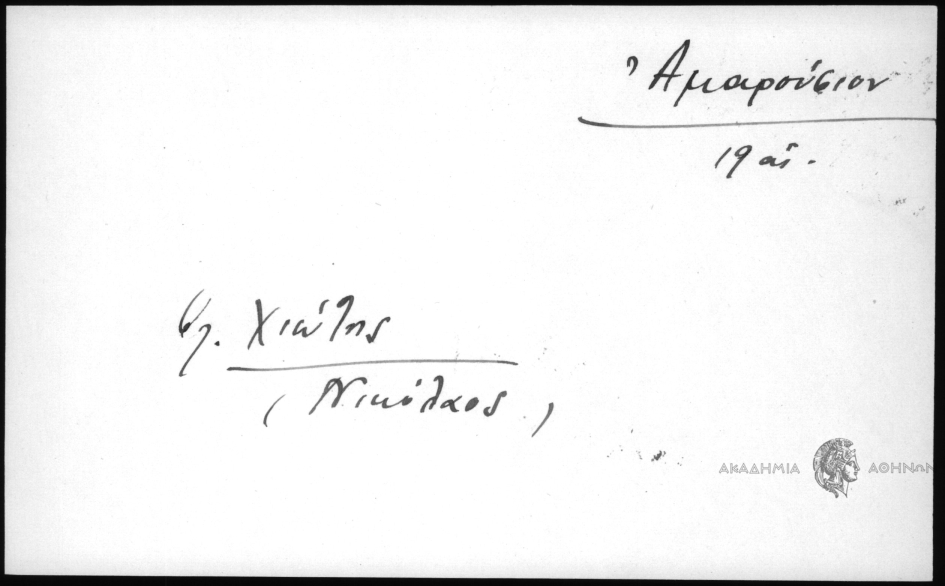 Ἀμαρούσιον
19 αἰ.
βλ. Χιώτης
(Νικόλαος)
ΑΚΑΔΗΜΙΑ ΑΘΗΝΩΝ